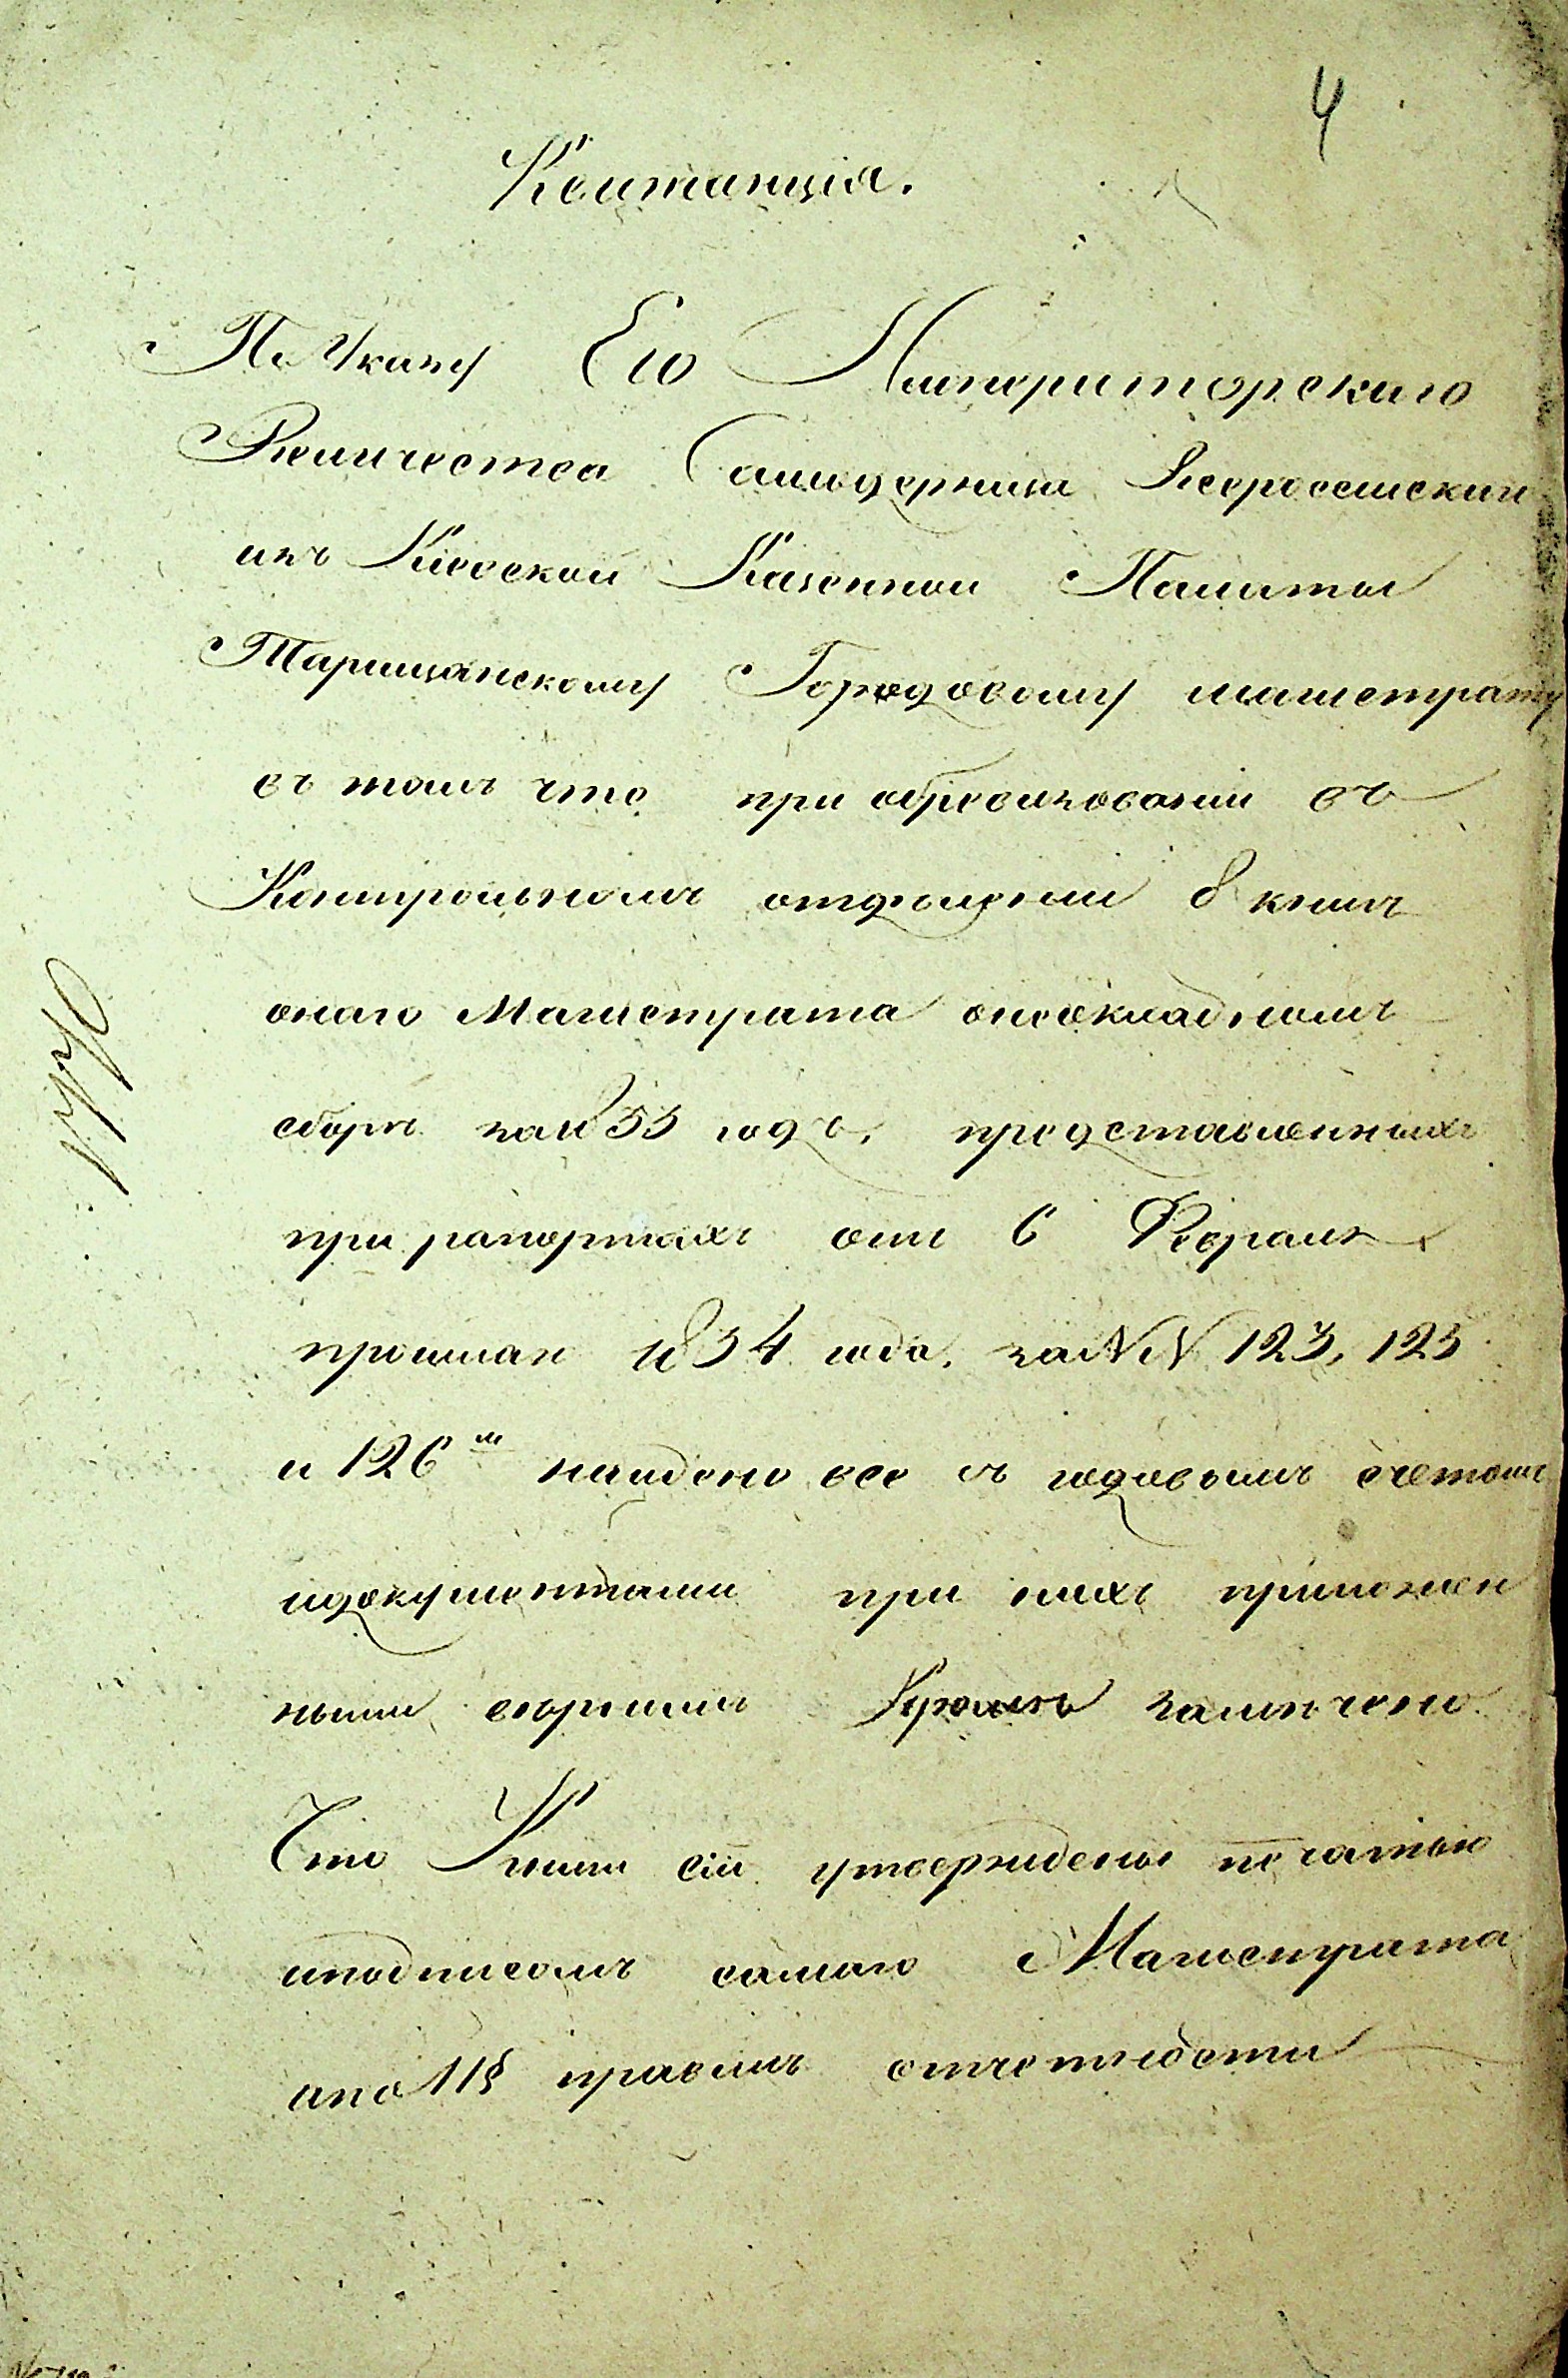 4
Квитанція.
По Указу Его Императорскаго
Величества Самодержца Всероссійскаго
изъ Кіевской Казенной Палаты
Таращанскому Городовому магистрату
въ томъ что при обревизованіи въ
Контрольномъ отдѣленіи 8 книгъ
онаго Магистрата онеокладномъ
сборѣ за 1833 годъ, представленныхъ
при рапортахъ отъ 6 Февраля
прошлаго 1834 года, за NN 123, 125
и 126м найдено все съ годовымъ счетомъ
идокументами при нихъ приложен
ными вѣрнымъ замѣчено
Что Книги сіи утверждены печатью
иподписомъ самаго Магистрата
апо 11§ правилъ отчетности